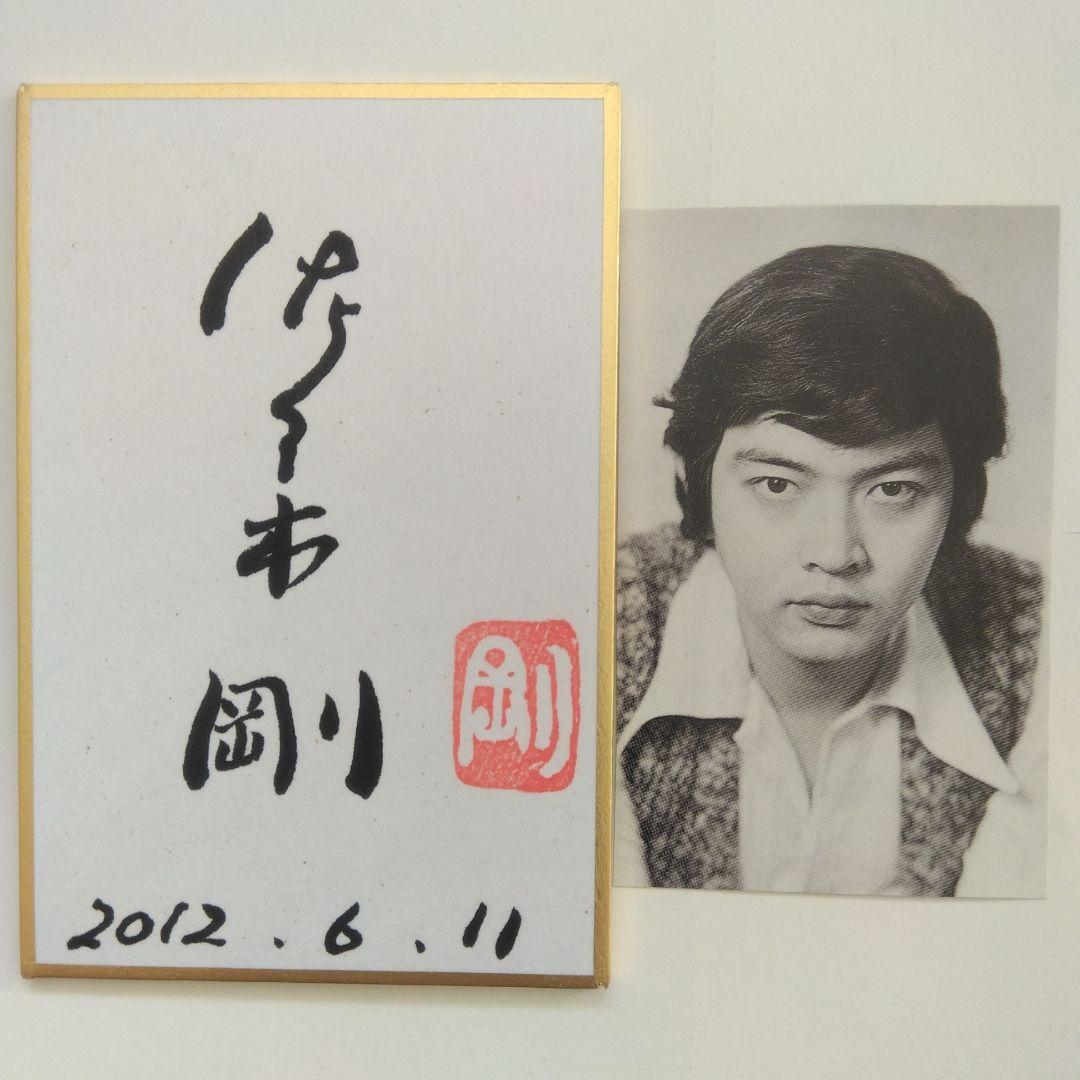 佐々木
剛
剛
2012.6.11